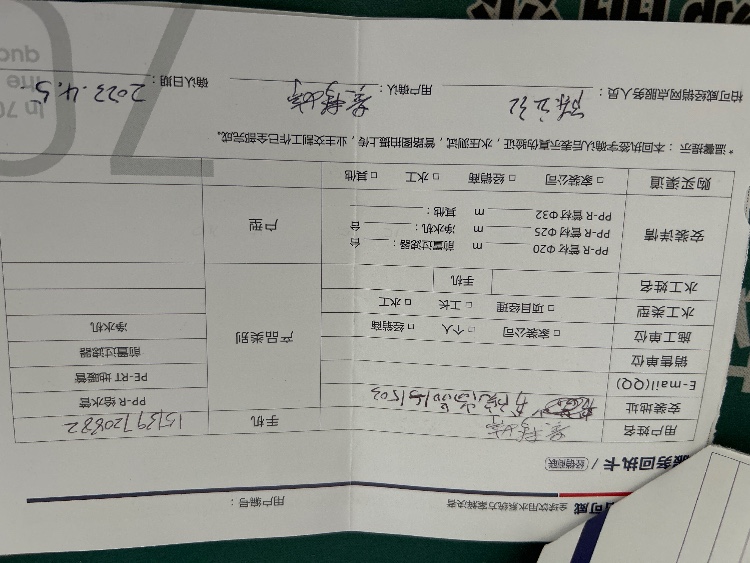 柏可威 全球饮用水系统方案解决者 用户编号：
服务回执卡 / 经销商联
用户姓名 手机 15139720882
安装地址
E-mail(QQ)
销售单位
施工单位 □ 家装公司 □ 个人 □ 经销商
水工类型 □ 项目经理 □ 工长 □ 水工
水工姓名 手机
产品类别
PP-R 给水管
PE-RT 地暖管
前置过滤器
净水机
安装详情
PP-R 管材 Φ20 m 前置过滤器： 台
PP-R 管材 Φ25 m 净水机： 台
PP-R 管材 Φ32 m 其他：
户型
购买渠道 □ 家装公司 □ 经销商 □ 水工 □ 其他
*温馨提示：本回执签字确认后表示真伪验证，水压测试，管路图拍摄上传，业主交割工作已全部完成。
柏可威经销网点服务人员： 用户确认： 确认日期： 2023.4.5
70
In 70
the
quo